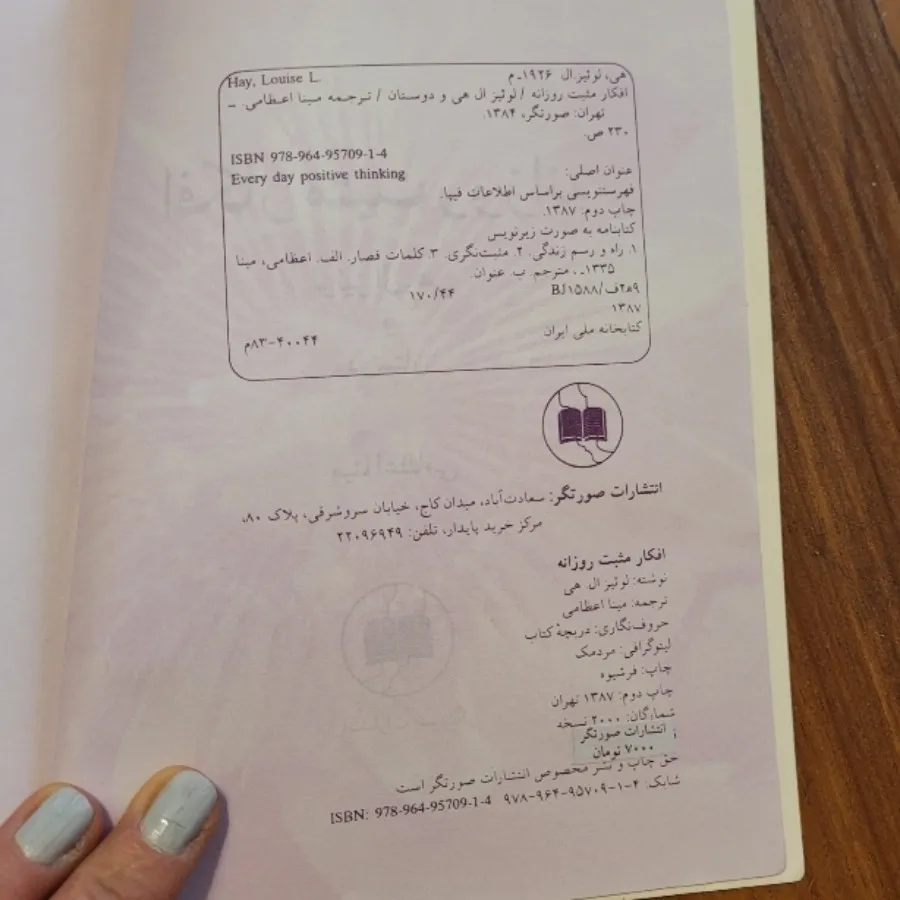 Hay, Louise L.
هی، لوئیز.ال ۱۹۲۶ـ م
افکار مثبت روزانه / لوئیز ال هی و دوستان / ترجمه مینا اعظامی. ـ
تهران: صورتگر، ۱۳۸۴.
۲۳۰ ص.
ISBN 978-964-95709-1-4
عنوان اصلی:
Every day positive thinking
فهرستنویسی براساس اطلاعات فیپا.
چاپ دوم: ۱۳۸۷.
کتابنامه به صورت زیرنویس
۱. راه و رسم زندگی. ۲. مثبت‌نگری. ۳. کلمات قصار. الف. اعظامی، مینا
۱۳۳۵ـ ، مترجم. ب. عنوان.
۱۷۰/۴۴
BJ۱۵۸۸/ف۲ه۹
۱۳۸۷
کتابخانه ملی ایران
۸۳-۴۰۰۴۴م
انتشارات صورتگر: سعادت‌آباد، میدان کاج، خیابان سروشرقی، پلاک ۸۰،
مرکز خرید پایدار، تلفن: ۲۲۰۹۶۹۴۹
افکار مثبت روزانه
نوشته: لوئیز ال. هی
ترجمه: مینا اعظامی
حروف‌نگاری: دریچهٔ کتاب
لیتوگرافی: مردمک
چاپ: فرشیوه
چاپ دوم: ۱۳۸۷ تهران
شمارگان: ۲۰۰۰ نسخه
انتشارات صورتگر
۷۰۰۰ تومان
حق چاپ و نشر مخصوص انتشارات صورتگر است
شابک: ۴-۱-۹۵۷۰۹-۹۶۴-۹۷۸ ISBN: 978-964-95709-1-4